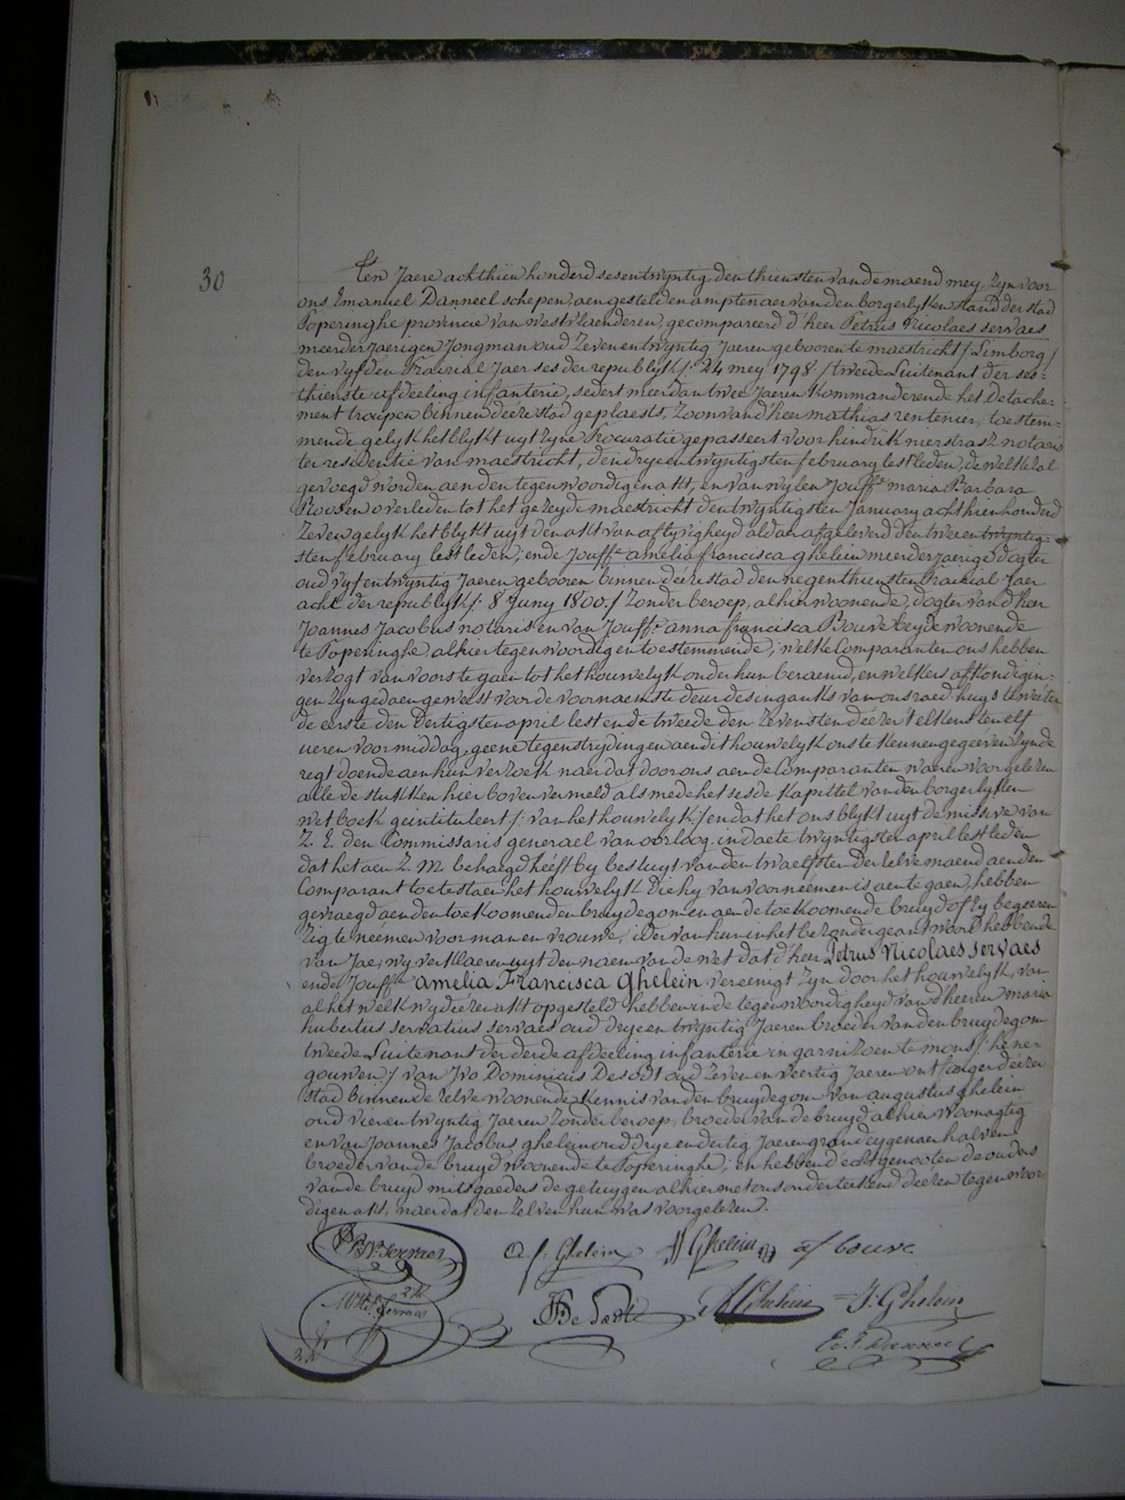 30
Ten Jaere achthien honderd sesentwyntig, den thiensten vande maend mey, zyn voor
ons Emanuel Danneel schepen, aengestelden amptenaer van den borgerlyken stand der stad
Poperinghe provincie van westvlaenderen, gecompareerd d'heer Petrus Nicolaes servaes
meerderjaerigen Jongman oud Zeven en twyntig Jaeren gebooren te maestricht / Limborg /
den vyfden Prairial Jaer ses der republyk /: 24 mey 1798 :/ tweede Luitenant der ses=
thienste afdeeling infanterie, sedert meerdan twee Jaeren kommanderende het Detache=
ment troupen binnen deeze stad geplaest, Zoon van d'heer mathias rentenier, toestem=
mende gelyk het blykt uyt zyne Procuratie gepasseert voor hindrik nierstrasz notaris
ter residentie van maestricht, den dryentwyntigsten february lestleden, de welke zal
gevoegd worden aen den tegenwoordigen akt, en van wylen Jouffe maria Barbara
Roosen overleden tot het gezeyde maestricht den twyntigsten January achthienhonderd
Zeven gelyk het blykt uyt den akt van aflyvigheyd aldaer afgeleverd den tweeentwyntig=
sten february lestleden; ende Jouffe amelia francisca ghelein meerderjaerige dogter
oud vyfentwyntig Jaeren gebooren binnen deéze stad den negenthiensten Prairial Jaer
acht der republyk /: 8 Juny 1800 :/ Zonder beroep, alhier woonende, dogter van d'heer
Joannes Jacobus notaris en van Jouffe anna francisca Bouve beyde woonende
te Poperinghe alhier tegenwoordig en toestemmende; welke Comparanten ons hebben
verzogt van voorste gaen tot het houwelyk onder hun beraemd, en welkers afkondigin=
gen zyn gedaen geweest voor de voornaemste deur des ingankts van ons raedhuys te weéten
de eerste den dertigsten april lest ende tweede den Zevensten deézer telkens ten elf
ueren voormiddag, geene tegenstrydingen aen dit houwelyk ons te kennen gegeéven zynde
regt doende aen hun verzoek naer dat door ons aen de Comparanten waeren voorgelezen
alle de stukken hier boven vermeld als mede het sesde kapittel van den borgerlyken
wetboek geintituleert /: van het houwelyk :/ en dat het ons blykt uyt de missive van
Z. E. den Commissaris generael van oorlog in daete twyntigsten april lestleden
dat het aen Z. M. behaegd heéft by besluyt van den twaelfsten der zelve maend aen den
Comparant toetestaen het houwelyk die hy van voorneémen is aen te gaen, hebben
gevraegd aen den toekoomenden bruydegom en aen de toekoomende bruyd of zy begeeren
zig te neémen voor man en vrouwe, ider van hun in het bezonder geantwoord hebbende
van Jae, wy verklaeren uyt den naem van de wet dat d'heer Petrus Nicolaes servaes
ende Jouffe amelia Francisca ghelein vereenigt zyn door het houwelyk, van
al het welk wy deézen akt opgesteld hebben in de tegenwoordigheyd van d'heeren maria
hubertus servatius servaes oud dryentwyntig Jaeren broeder van den bruydegom
tweede Luitenant der derde afdeeling infanterie in garnizoen te mons /: hene=
gouwen :/ van Ivo Dominicus Desodt oud Zeven en veertig Jaeren ontfanger deézer
stad binnen de zelve woonende kennis van den bruydegom van augustus ghelein
oud vierentwyntig Jaeren zonder beroep, broeder van de bruyd alhier woonagtig
en van Joannes Jacobus ghelein oud dryendertig Jaeren grondeygenaer halven
broeder van de bruyd woonende te Poperinghe; en hebben d'echtgenooten de ouders
van de bruyd mitsgaeders de getuygen alhier met ons onderteekend deézen tegenwoor=
digen akt, naer dat den zelven hun was voorgelezen.
P.N. Servaes A. f. Ghelein JJ Ghelein af bouve
M H S. Servaes De Sodt A Ghelein J: Ghelein
E. J. Danneel